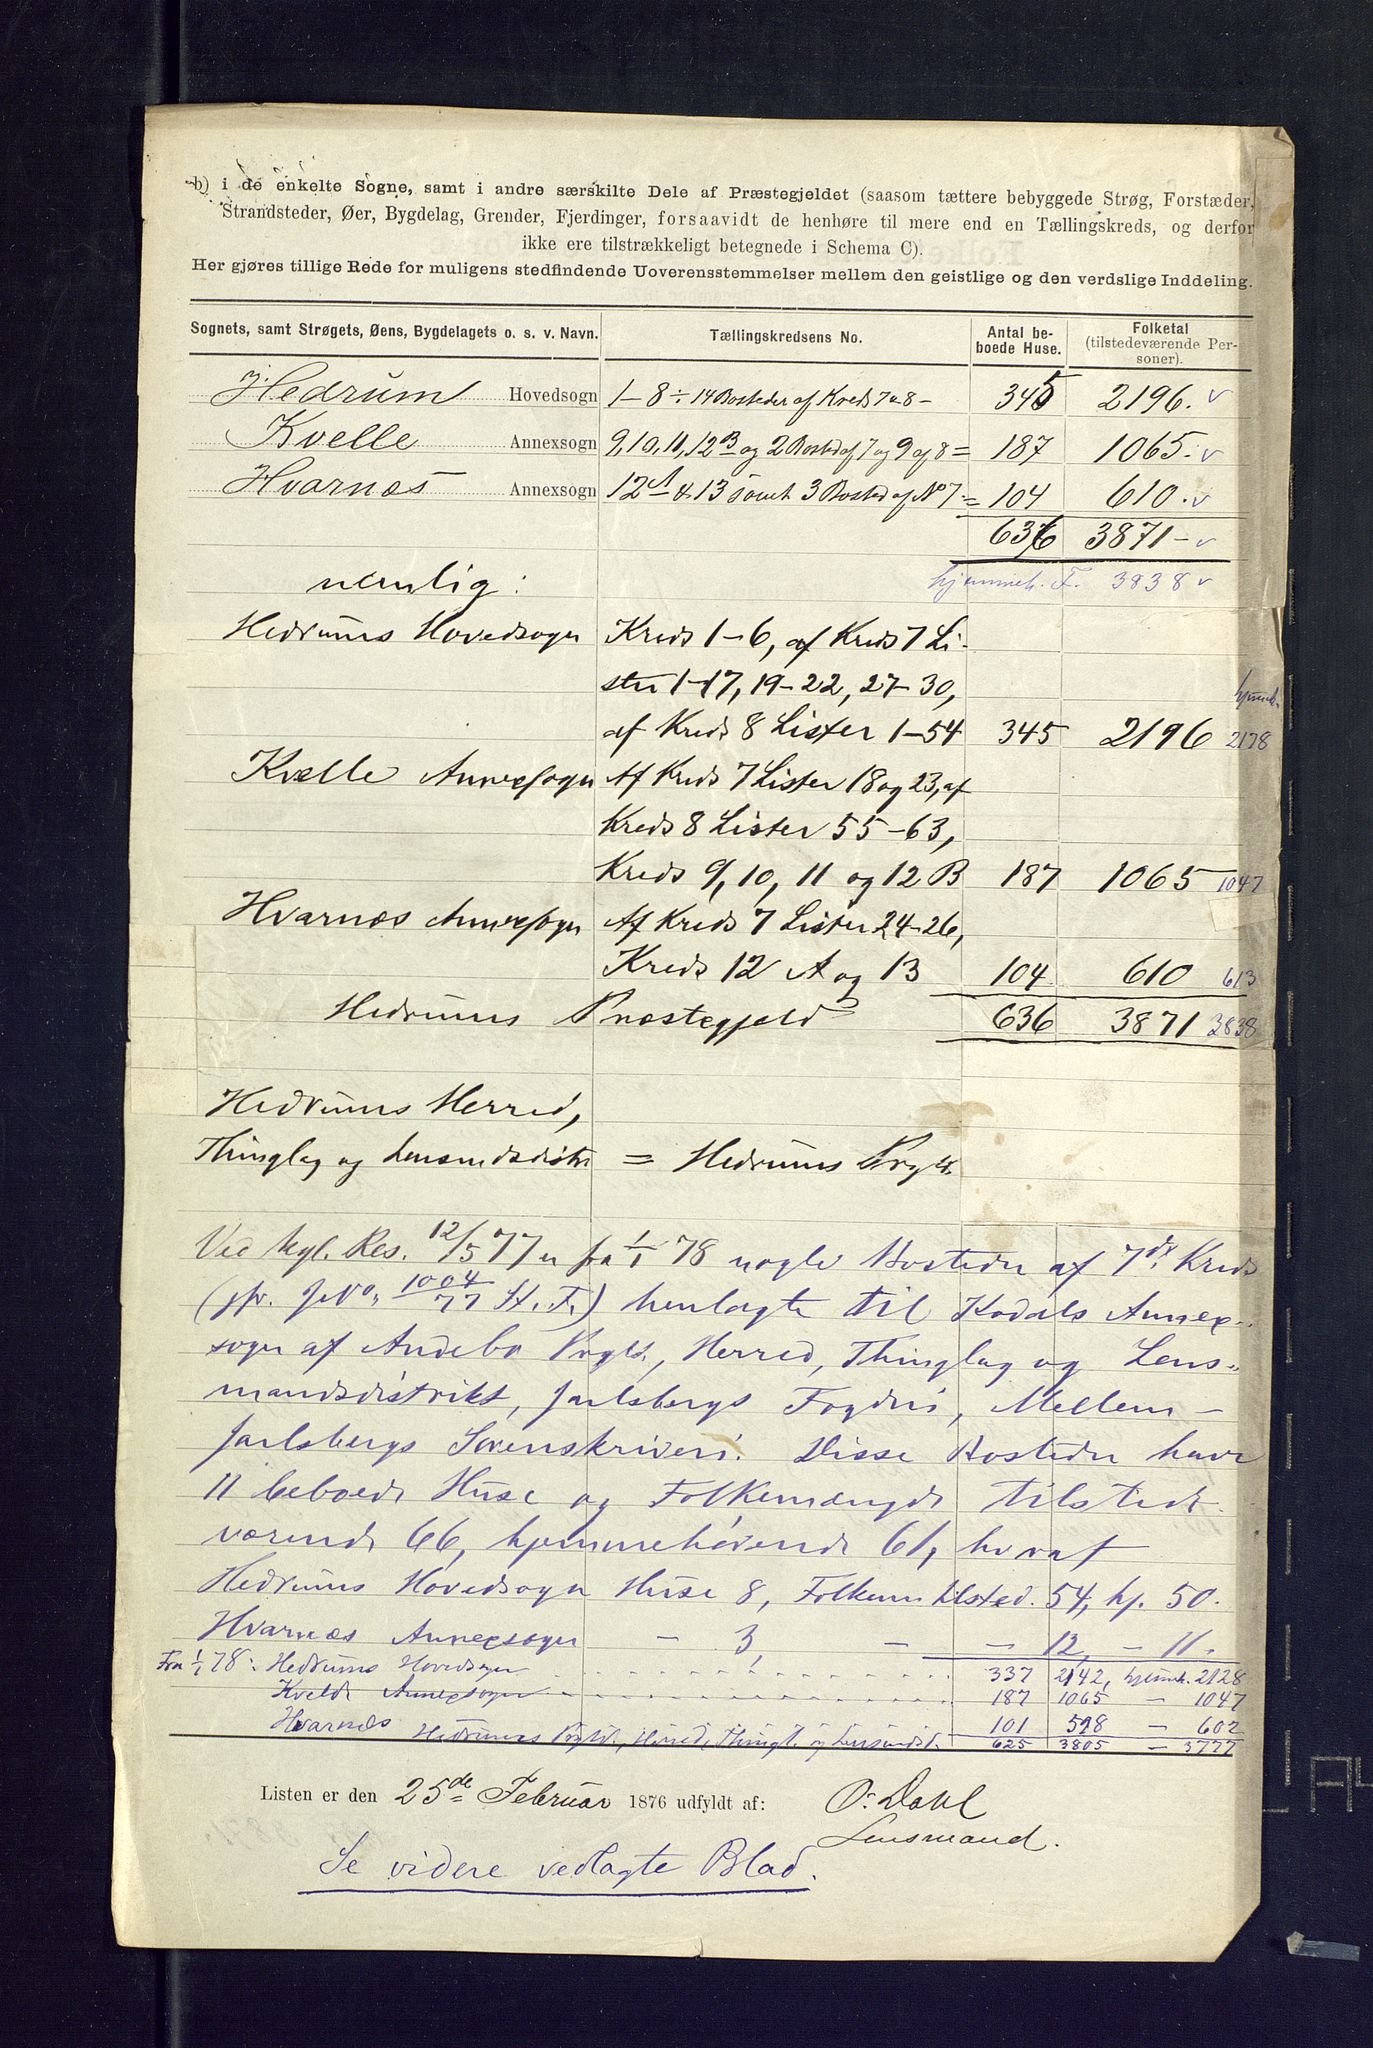 b) i de enkelte Sogne, samt i andre særskilte Dele af Præstegjeldet (saasom tættere bebyggede Strøg, Forstæder,
Strandsteder, Øer, Bygdelag, Grender, Fjerdinger, forsaavidt de henhøre til mere end en Tællingskreds, og derfor
ikke ere tilstrækkeligt betegnede i Schema C).
Her gjøres tillige Rede for muligens stedfindende Uoverensstemmelser mellem den geistlige og den verdslige Inddeling.
Sognets, samt Strøgets, Øens, Bygdelagets o. s. v. Navn. Tællingskredsens No. Antal beboede Huse. Folketal (tilstedeværende Personer).
Hedrum Hovedsogn 1-8 ÷ 14 Bosteder af Kreds 7 & 8 - 345 2196. v
Kvelle Annexsogn 9, 10, 11, 12 B og 2 Bosted af 7 og 9 af 8 = 187 1065. v
Hvarnæs Annexsogn 12 A & 13 samt 3 Bosted af No 7. = 104 610. v
636 3871 - v
hjemmeh. F. 3838 v
nemlig:
Hedrums Hovedsogn Kreds 1-6, af Kreds 7 Li-
ster 1-17, 19-22, 27-30, hjemh.
af Kreds 8 Lister 1-54 345 2196 2178
Kvelle Annexsogn Af Kreds 7 Lister 18 og 23, af
Kreds 8 Lister 55-63,
Kreds 9, 10, 11 og 12 B 187 1065 1047
Hvarnæs Annexsogn Af Kreds 7 Lister 24-26,
Kreds 12 A og 13 104 610 613
Hedrums Præstegjeld 636 3871 3838
Hedrums Herred,
Thinglag og Lensmdsdistr = Hedrums Prgld.
Ved kgl. Res. 12/5 77 er fra 1/1 78 nogle Bosteder af 7de Kreds
(jfr. JNo. 1004/77 St. F.) henlagte til Kodals Annex-
sogn af Andebo Prgld., Herred, Thinglag og Lens-
mandsdistrikt, Jarlsbergs Fogderi, Mellem-
Jarlsbergs Sorenskriveri. Disse Bosteder have
11 beboede Huse og Folkemængde tilstede-
værende 66, hjemmehørende 61, hvoraf
Hedrums Hovedsogn Huse 8, Folkem. tilsted. 54, hj. 50.
Hvarnæs Annexsogn - 3, - - 12, - 11.
Fra 1/1 78: Hedrums Hovedsogn 337 2142, hjemh. 2128
Kvelde Annexsogn 187 1065 - 1047
Hvarnæs 101 598 - 602
Hedrums Prgld., Herred, Thingl. og Lensmdsd. 625 3805 - 3777
Listen er den 25de Februar 1876 udfyldt af: O. Dahl
Lensmand.
Se videre vedlagte Blad.